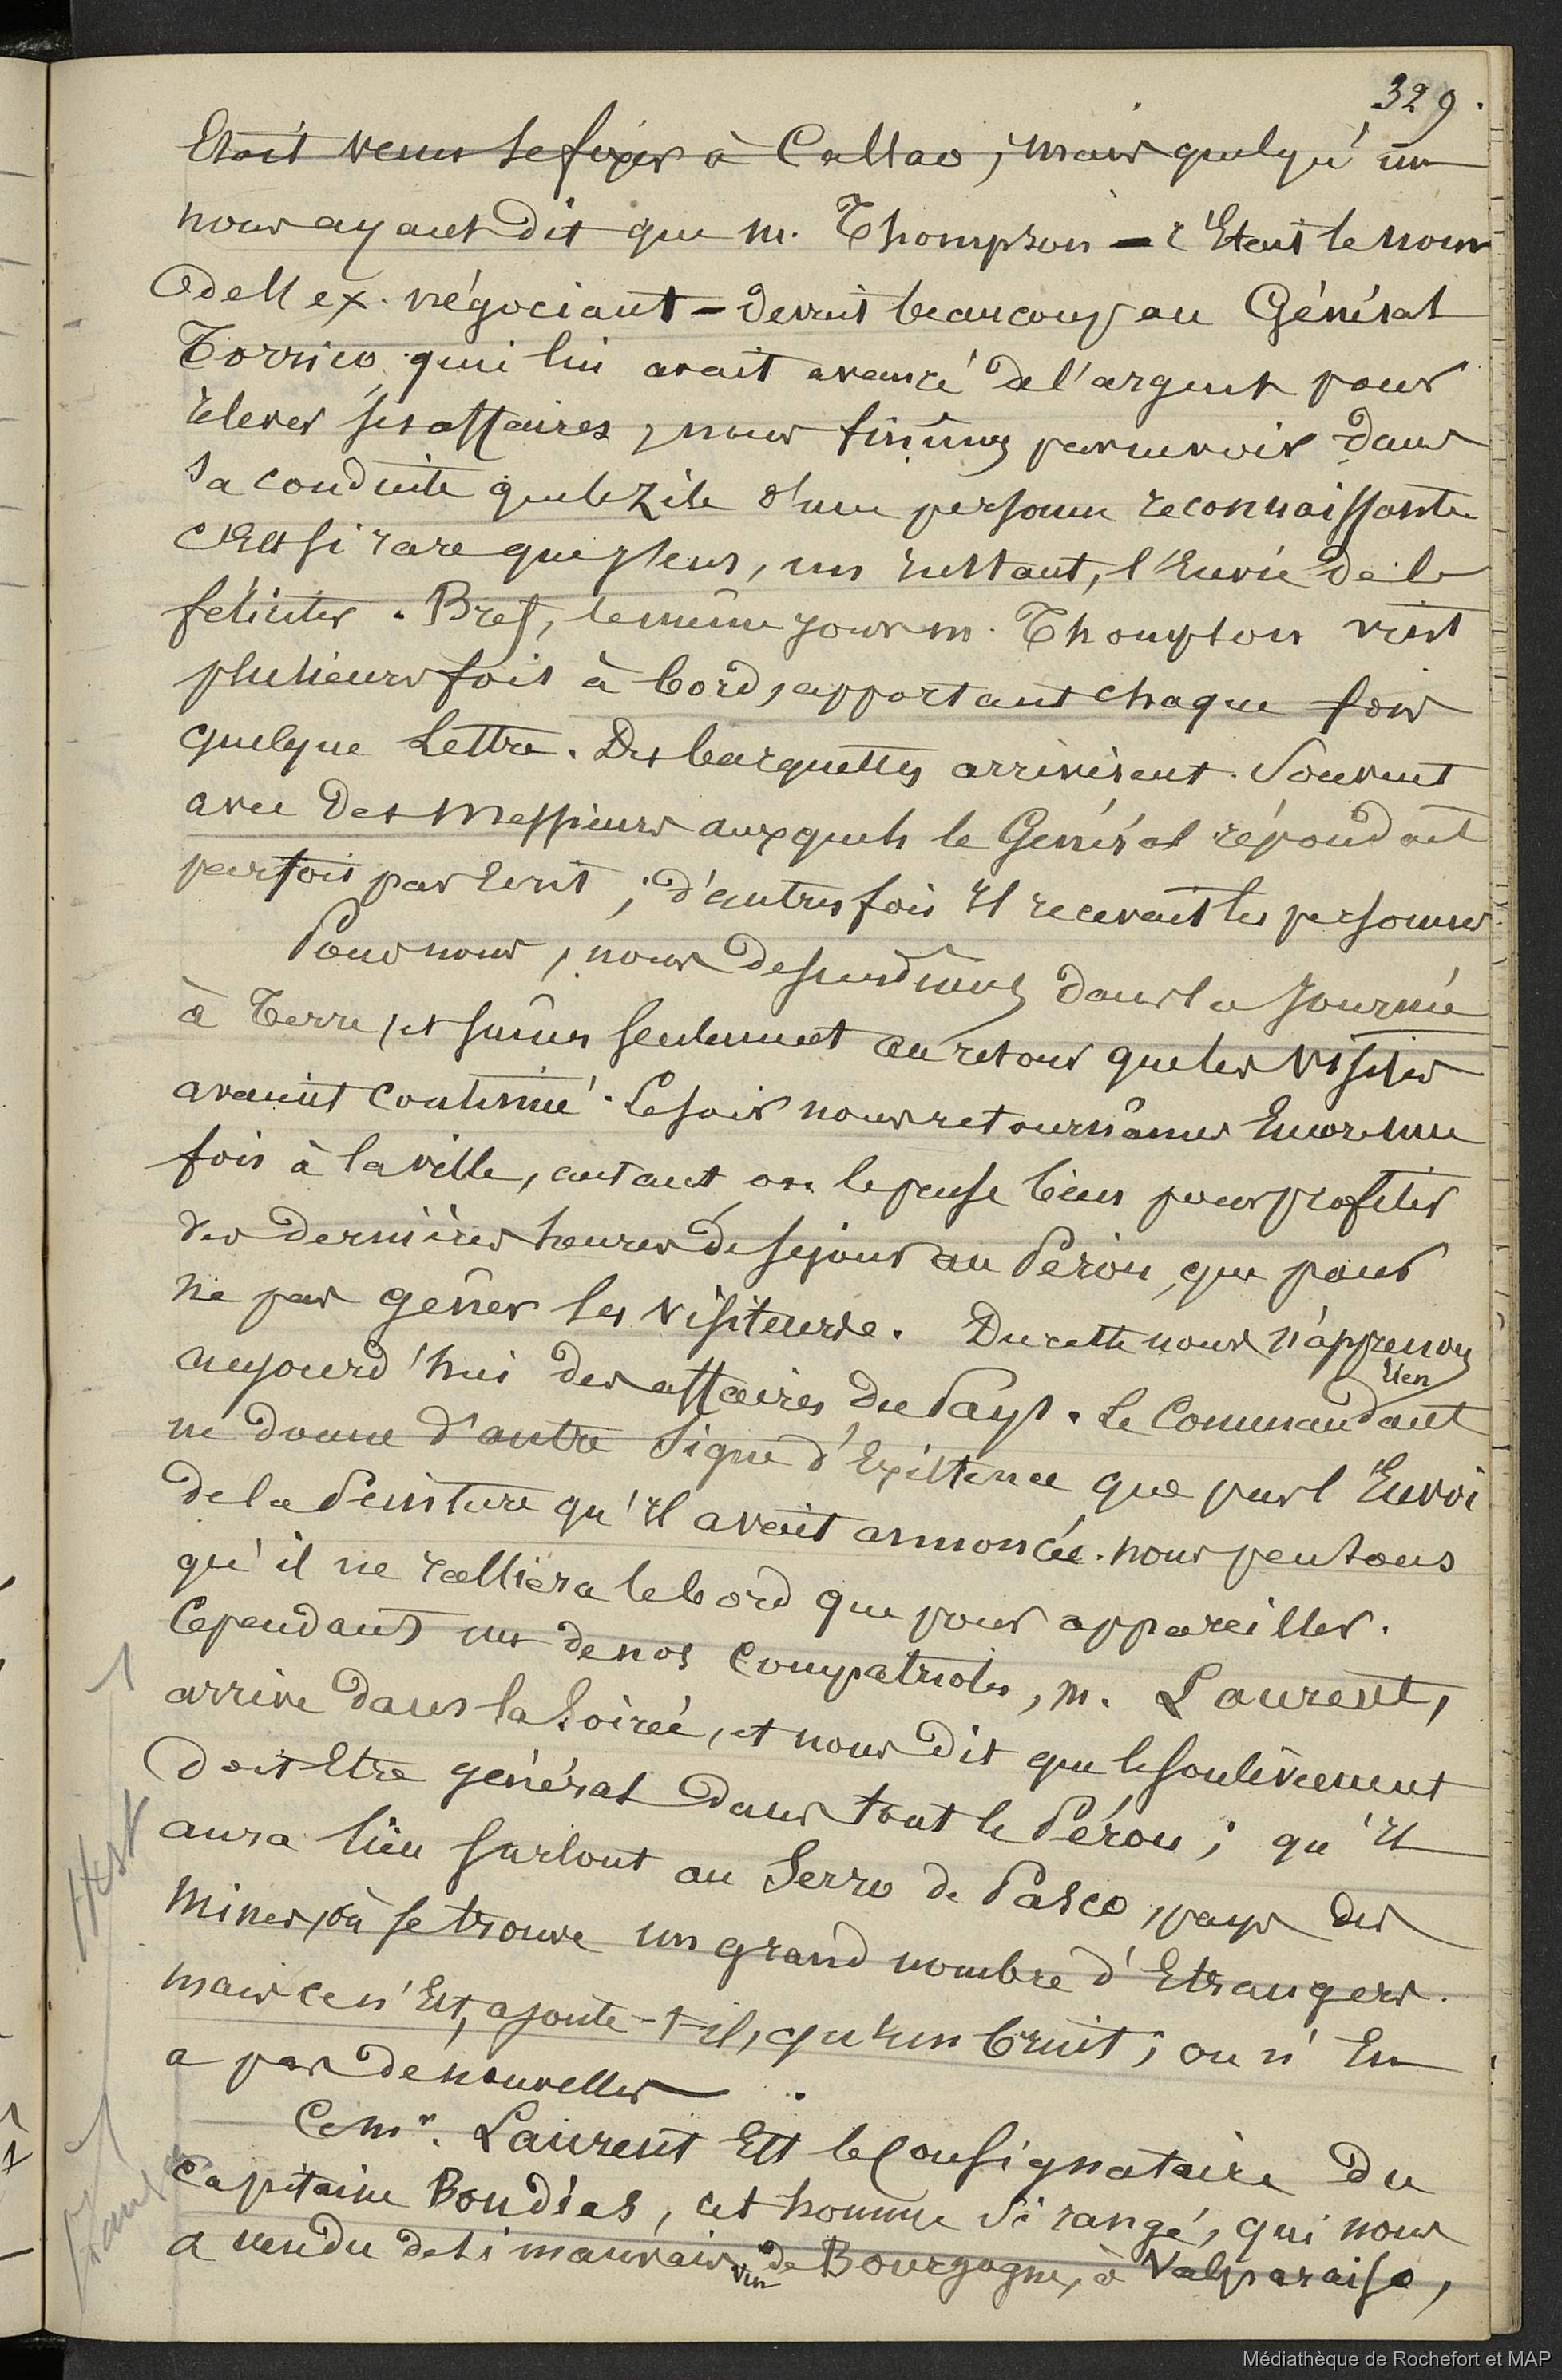 329.
Etait venu se fixer à Callao ; mais quelqu'un
nous ayant dit que m. Thompson - c'Etait le nom
de cet ex. négociant - devait beaucoup au Général
Torrico qui lui avait avancé de l'argent pour
relever ses affaires, nous finîmes par ne voir dans
sa conduite que le zèle d'une personne reconnaissante
C'Est si rare que j'eus, un instant, l'Envie de le
féliciter. Bref, le même jour m. Thompson vint
plusieurs fois à bord, apportant chaque fois
quelque Lettre. Des barquettes arrivèrent souvent
avec des Messieurs auxquels le Général répondait
parfois par Ecrit ; d'autres fois Il recevait les personnes
Pour nous, nous descendîmes dans la Journée
à Terre, et sûmes seulement au retour que les visites
avaient continué. Le soir nous retournâmes Encore une
fois à la ville, autant on le pense bien pour profiter
des dernières heures de séjour au Pérou, que pour
ne pas gêner les visiteurs. Du reste nous n'apprenons
rien
aujourd'hui des affaires du Pays. Le Commandant
ne donne d'autre signe d'Existence que par l'Envoi
de la Peinture qu'Il avait annoncée. nous pensons
qu'il ne ralliera le bord que pour appareiller.
Cependant un de nos Compatriotes, m. Laurent,
arrive dans la soirée, et nous dit que le soulèvement
doit Etre général dans tout le Pérou ; qu'Il
aura lieu surtout au Serro de Pasco, pays des
Mines, où se trouve un grand nombre d'Etrangers.
mais ce n'Est, ajoute-t-il, qu'un bruit ; on n'En
a pas de nouvelles.
Ce mr. Laurent Est le Consignataire du
Capitaine Bondias, cet homme si rangé, qui nous
a vendu de si mauvais vin de Bourgogne, à Valparaiso,
Médiathèque de Rochefort et MAP